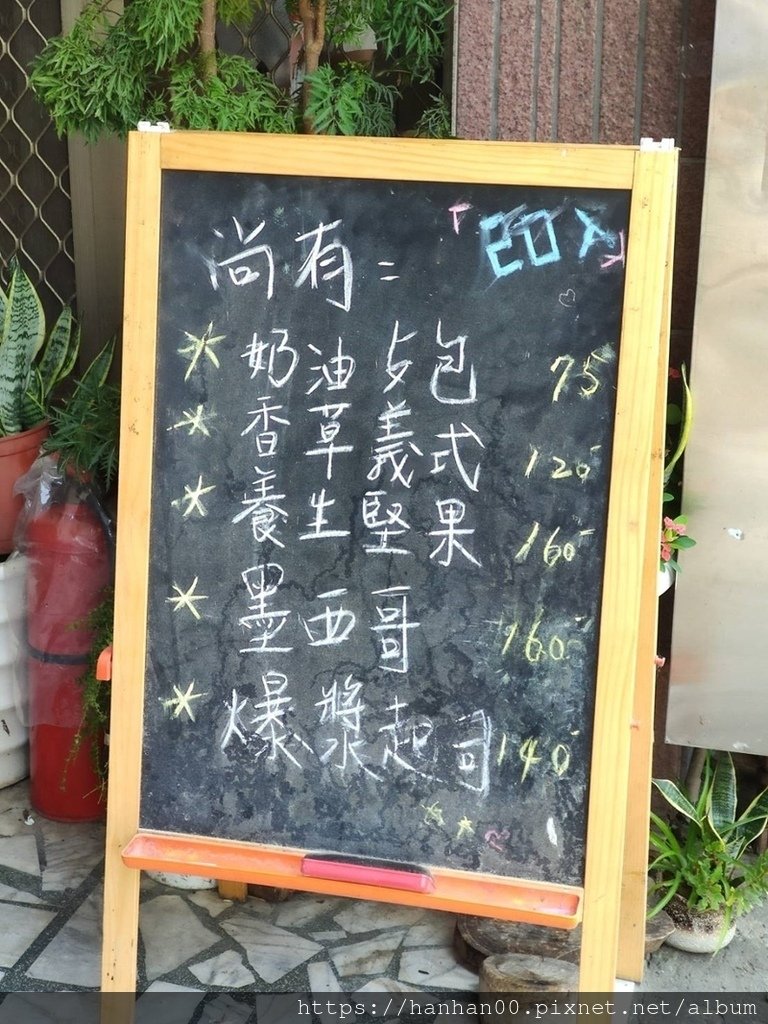 尚有=
20入
* 奶油与包 75
* 香草義式 120
* 養生堅果 160
* 墨西哥 160
* 爆漿起司 140
https://hanhan00.pixnet.net/album